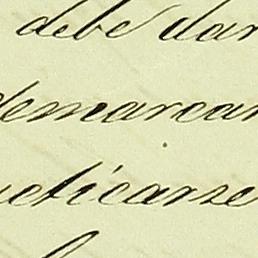 debe dar
demarcar
cticarse